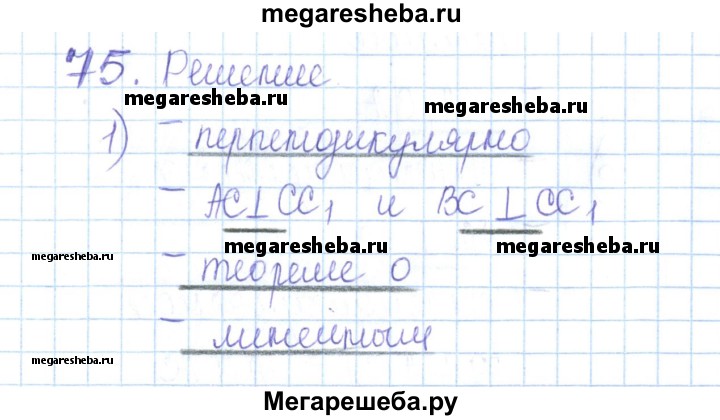 megaresheba.ru
75. Решение
megaresheba.ru megaresheba.ru
1) – перпендикулярно
– AC⊥CC₁ и BC⊥CC₁
megaresheba.ru megaresheba.ru megaresheba.ru
– теореме о
– линейным
megaresheba.ru megaresheba.ru
Мегарешеба.ру